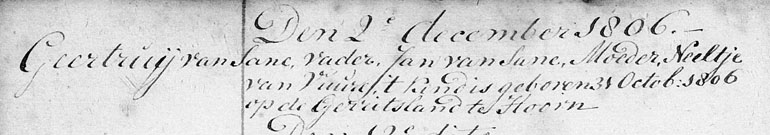 Den 2e december 1806.—
Geertruij van Sane, vader, Jan van Sane, Moeder, Neeltje
van Vuure, 't kind is geboren 31 Octob: 1806
op de Gerritsland te Hoorn